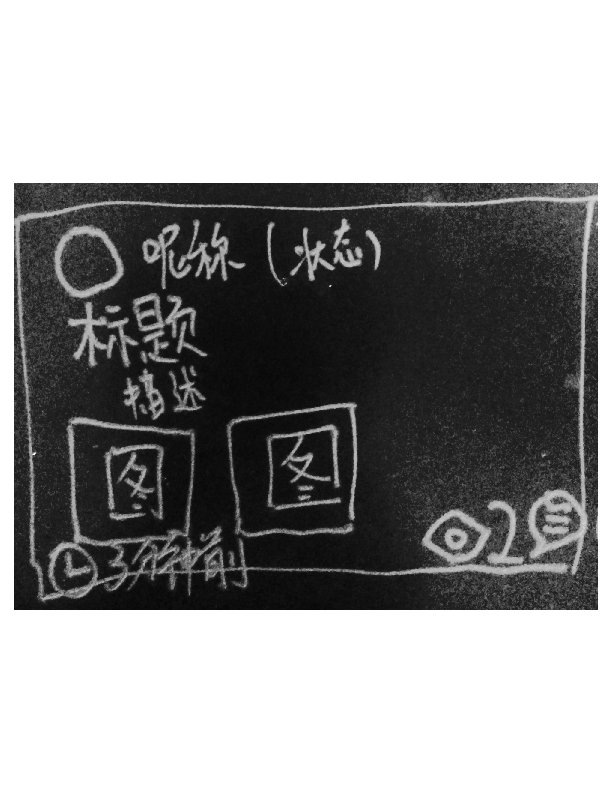 昵称（状态）
标题
描述
图 图
3分钟前 2